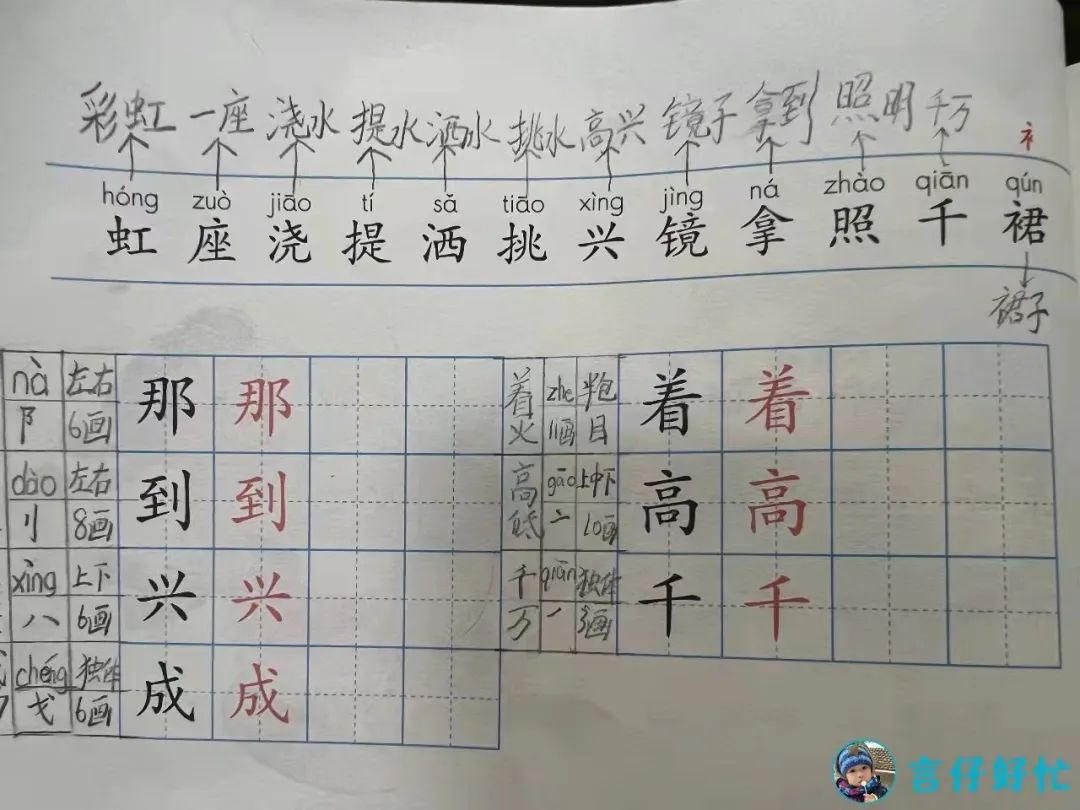 彩虹 一座 浇水 提水 洒水 挑水 高兴 镜子 拿到 照明 千万 衤
hóng zuò jiāo tí sǎ tiāo xìng jìng ná zhào qiān qún
虹 座 浇 提 洒 挑 兴 镜 拿 照 千 裙
裙子
nà 左右 那 那 着 zhe 半包 着 着
阝 6画 火 11画 目
dào 左右 到 到 高 gāo 上中下 高 高
刂 8画 低 亠 10画
xìng 上下 兴 兴 千 qiān 独体 千 千
八 6画 万 一 3画
chéng 独体 成 成
戈 6画
言仔好忙